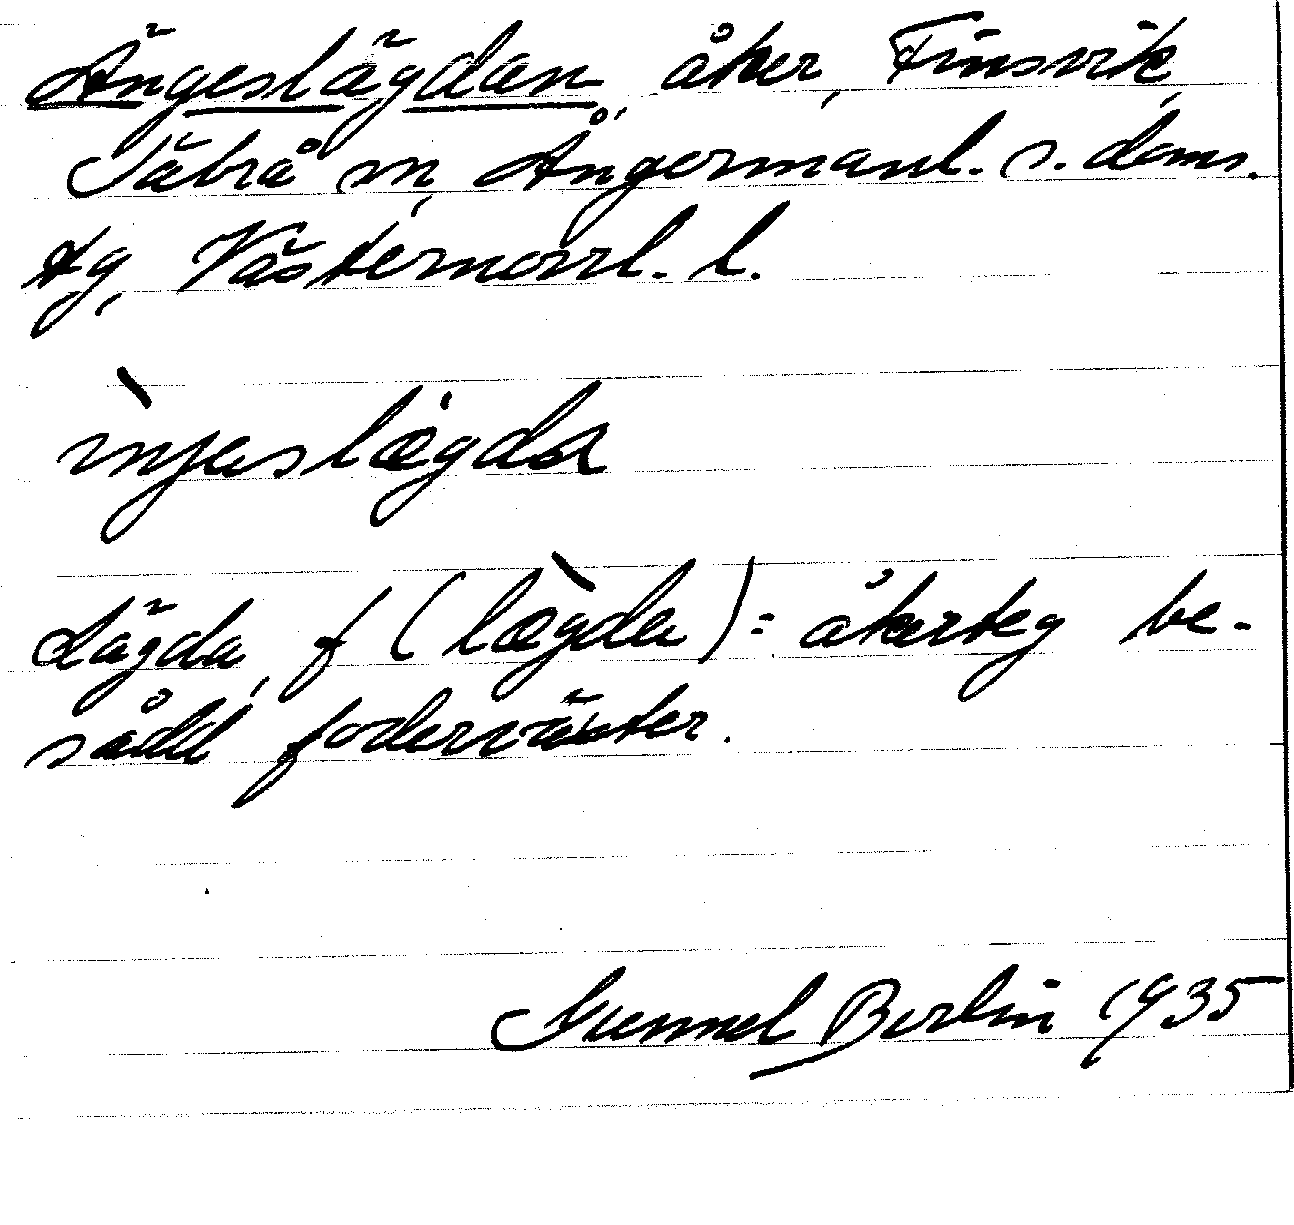 Ängeslägdan, åker, Finsvik,
Säbrå sn, Ångermanl. s. doms.
tg, Västernorrl. l.
ìnjeslægda
Lägda, f (lægda): åkerteg be-
sådd foderväxter.
Gunnel Berlin 1935